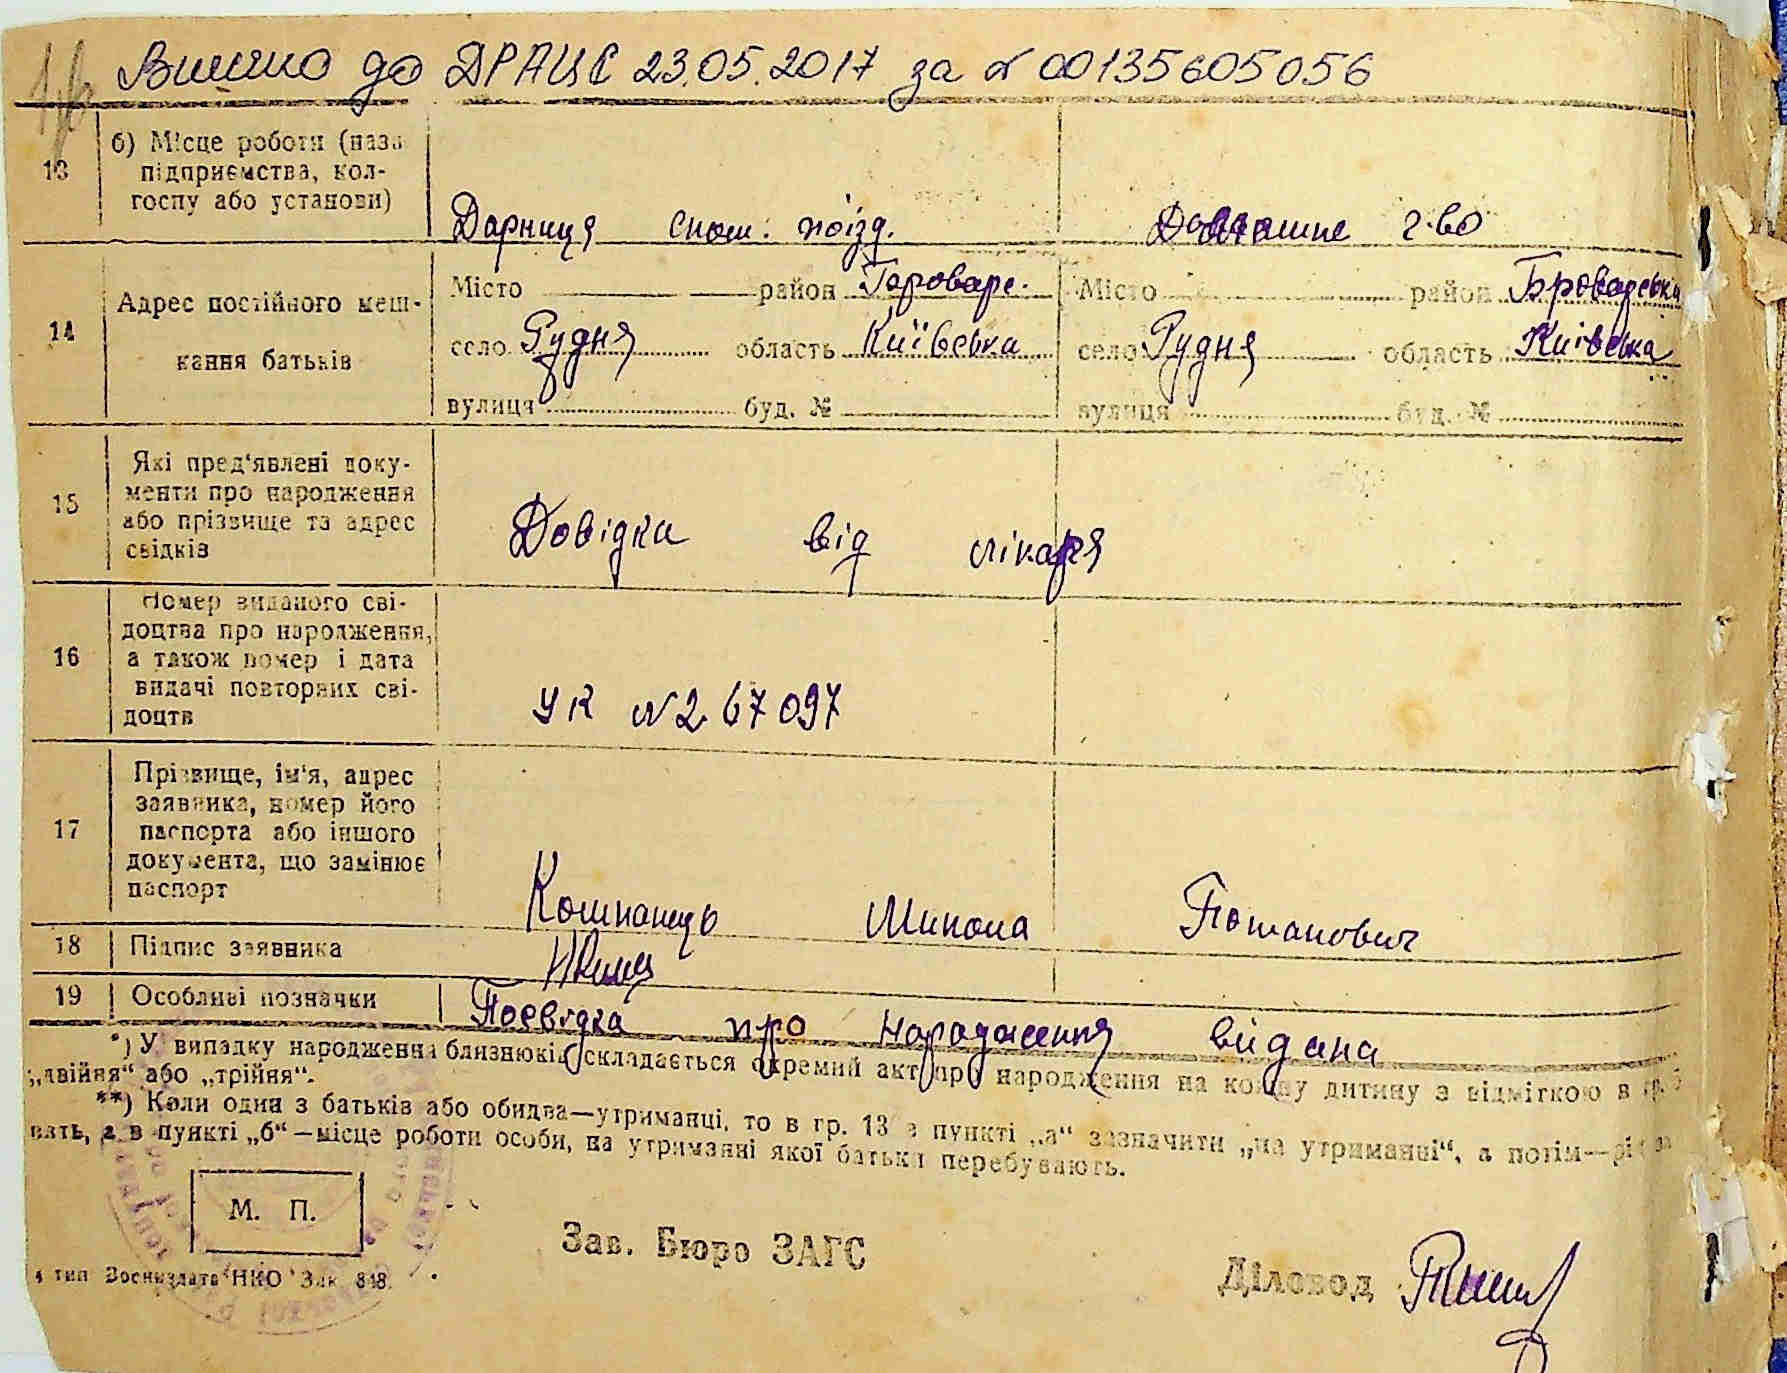 Внесено до ДРАЦС 23.05.2017 за № 00135605056
13
б) Місце роботи (назв
підприємства, кол-
госпу або установи)
Дарниця снош: поїзд.
Домашнє г-во
14
Адрес постійного меш-
кання батьків
Місто район Броварс.
село Рудня область Київська
вулиця буд. №
Місто район Броварська
село Рудня область Київська
вулиця буд. №
15
Які пред'явлені доку-
менти про народження
або прізвище та адрес
свідків
Довідка від лікаря
16
Номер виданого сві-
доцтва про народження,
а також номер і дата
видачі повторних сві-
доцтв
УК № 267097
17
Прізвище, ім'я, адрес
заявника, номер його
паспорта або іншого
документа, що замінює
паспорт
Микола Потапович
18 Підпис заявника
19 Особливі позначки
Посвідка про народження видана
*) У випадку народження близнюків складається окремий акт про народження на кожну дитину з відміткою в гр. 5
„двійня“ або „трійня“.
**) Коли один з батьків або обидва—утриманці, то в гр. 13 в пункті „а“ зазначити „на утриманні“, а потім—рід за
нять, а в пункті „б“—місце роботи особи, на утриманні якої батьки перебувають.
М. П.
Зав. Бюро ЗАГС
Діловод
4 тип Воениздата НКО Зак. 848.